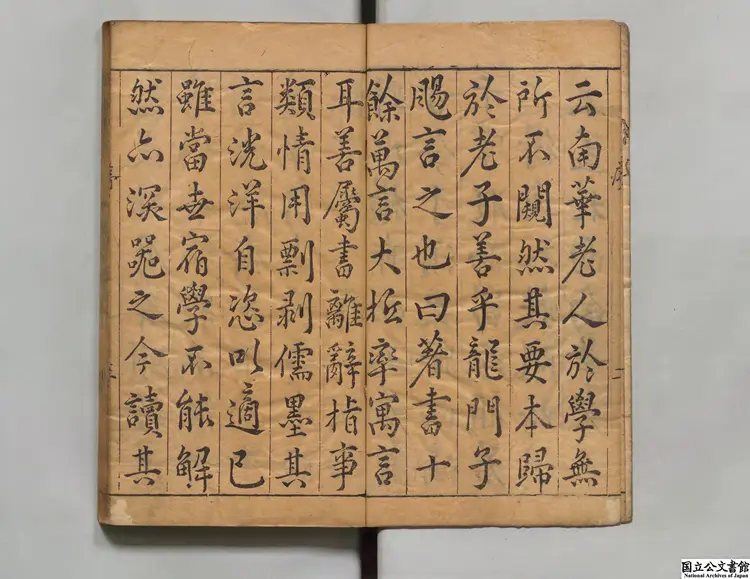 云南華老人於學無
所不闚然其要本歸
於老子善乎龍門子
賜言之也曰著書十
餘萬言大抵率寓言
耳善屬書離辭指事
類情用剽剥儒墨其
言洸洋自恣以適己
雖當世宿學不能解
然亦深器之今讀其
国立公文書館
National Archives of Japan